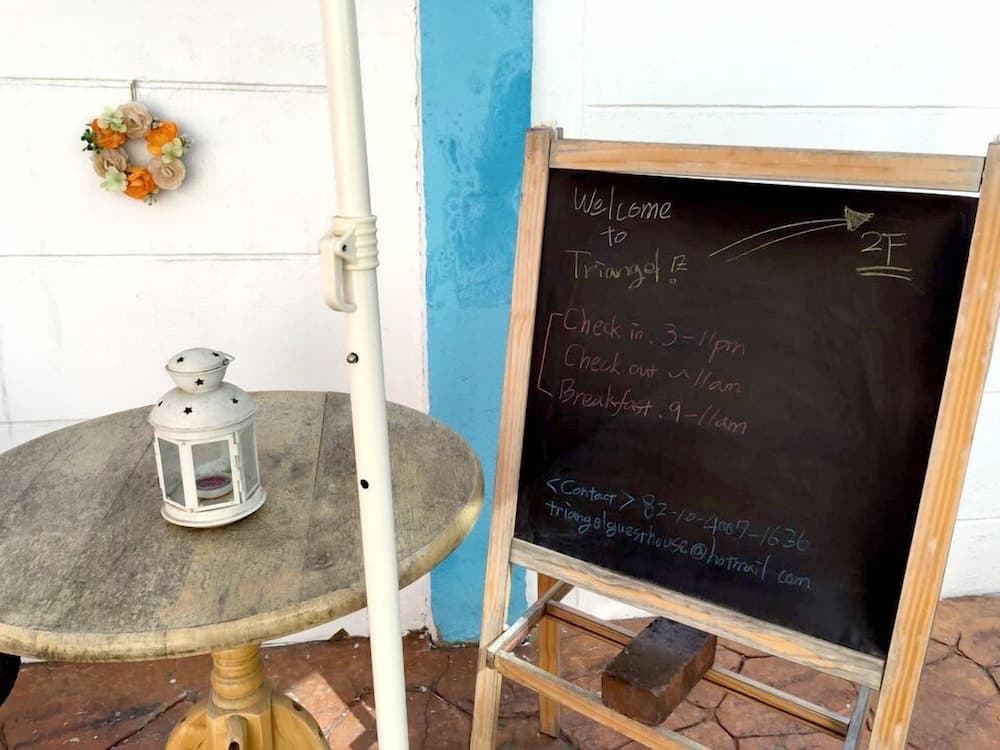 Welcome
to
Triangel !!
2F
Check in . 3-11pm
Check out ~ 11am
Breakfast . 9-11am
<Contact> 82-10-4007-1636
triangelguesthouse@hotmail com